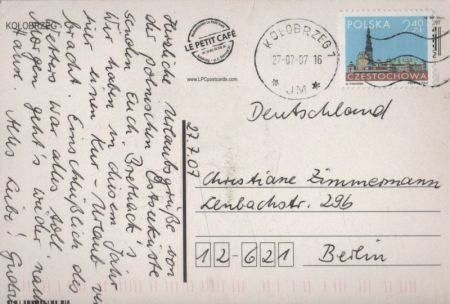 KOŁOBRZEG
LE PETIT CAFÉ
www.LPCpostcards.com
KOŁOBRZEG 1
27-07-07 16
* JM *
POLSKA 2,40 ZŁ
CZĘSTOCHOWA
27.7.07
Herzliche Urlaubsgrüße von
der polnischen Ostseeküste
senden Euch
Wir haben in diesem Jahr
hier einen Kur-Urlaub
bracht. Einschließlich des
Wetters war alles toll.
Morgen geht's wieder nach
Hause. Alles Liebe!
Deutschland
Christiane Zimmermann
Lenbachstr. 296
12-621 Berlin